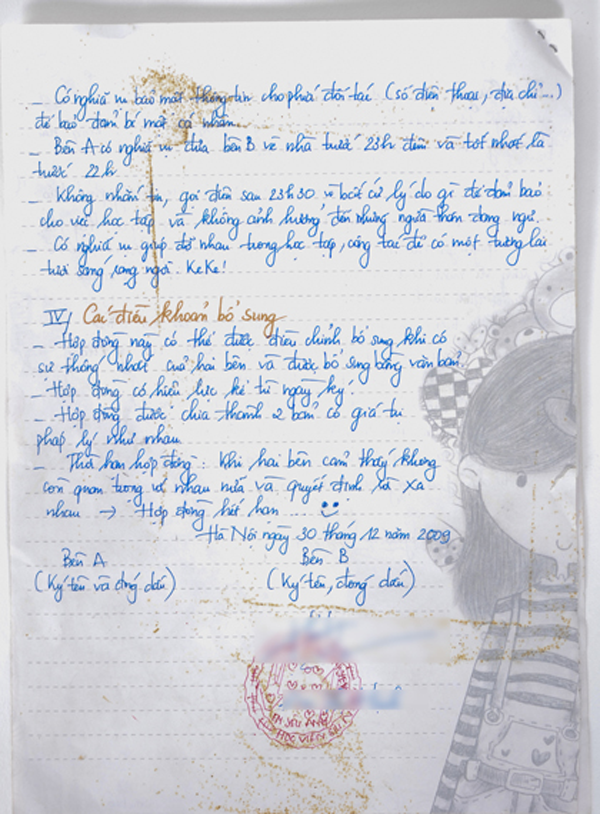 _ Có nghĩa vụ bảo mật thông tin cho phía đối tác (số điện thoại, địa chỉ...)
để bảo đảm bí mật cá nhân.
_ Bên A có nghĩa vụ đưa bên B về nhà trước 23h đêm và tốt nhất là
trước 22h
_ Không nhắn tin, gọi điện sau 23h30 vì bất cứ lý do gì để đảm bảo
cho việc học tập và không ảnh hưởng đến những người thân đang ngủ.
_ Có nghĩa vụ giúp đỡ nhau trong học tập, công tác để có một tương lai
tươi sáng, rạng ngời. KeKe!
IV/ Các điều khoản bổ sung
_ Hợp đồng này có thể được điều chỉnh bổ sung khi có
sự thống nhất của hai bên và được bổ sung bằng văn bản.
_ Hợp đồng có hiệu lực kể từ ngày ký.
_ Hợp đồng được chia thành 2 bản có giá trị
pháp lý như nhau
_ Thời hạn hợp đồng: Khi hai bên cảm thấy không
còn quan trọng với nhau nữa và quyết định rời xa
nhau → Hợp đồng hết hạn ...
Hà Nội ngày 30 tháng 12 năm 2009
Bên A Bên B
(Ký tên và đóng dấu) (Ký tên, đóng dấu)